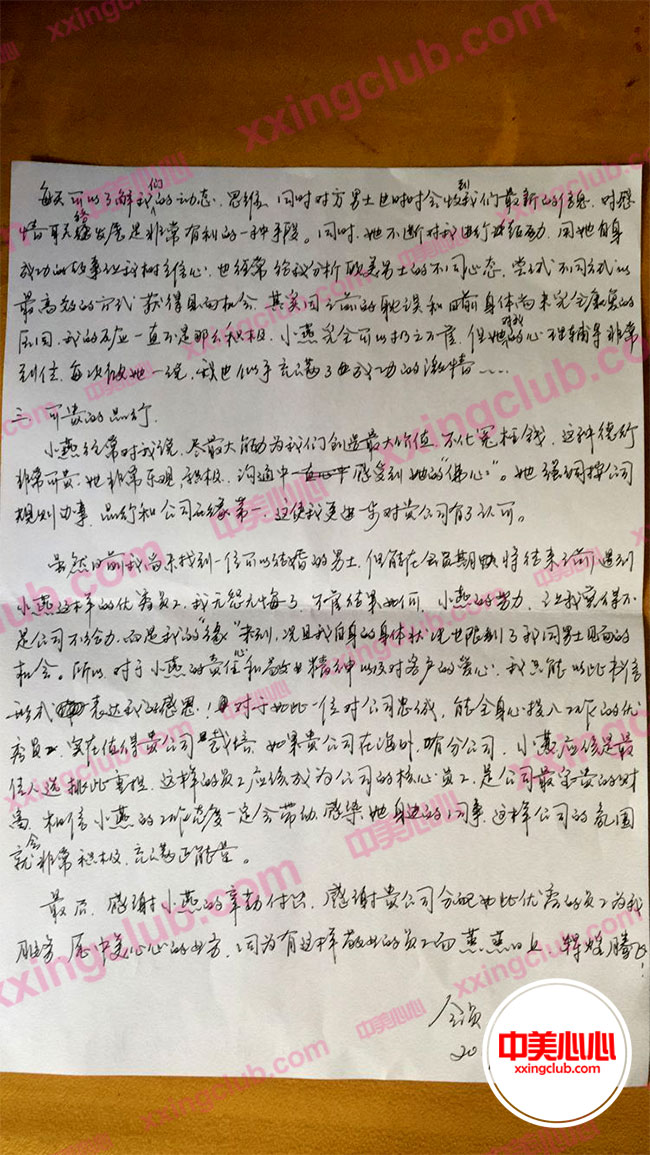 每天可以了解我们的动态、思维、同时对方男士也时时会收到我们最新的信息、对恋
情联络发展是非常有利的一种手段。同时,她不断对我进行鼓励,用她自身
成功的故事让我树立信心,也经常给我分析欧美男士的不同心态,尝试不同方式以
最高效的方式获得见面机会,其实因之前的耽误和目前身体尚未完全康复的
原因,我的反应一直不是那么积极,小燕完全可以扔之不管,但她对我的心理辅导非常
到位,每次被她一说,我也似乎充满了成功的激情……
三、可贵的品行.
小燕经常对我说,尽最大能力为我们创造最大价值,不花冤枉钱,这种德行
非常可贵.她非常乐观、积极,沟通中感受到她的“佛心”。她强调按公司
规则办事,品行和公司名缘第一,这使我更进一步对贵公司有了认可。
虽然目前我尚未找到一位可以结婚的男士,但能在会员期将结束之前遇到
小燕这样的优秀员工,我无怨无悔了,不管结果如何,小燕的努力,让我觉得不
是公司不给力,而是我的“缘”未到,况且我自身的身体状况也限制了我同男士见面的
机会。所以,对于小燕的责任心和敬业精神以及对客户的爱心,我只能以此书信
形式表达我的感恩!对于如此一位对公司忠诚,能全身心投入工作的优
秀员工,实在值得贵公司栽培,如果贵公司在海外有分公司,小燕应该是最
佳人选挑此重担,这样的员工应该成为公司的核心员工,是公司最宝贵的财
富,相信小燕的工作态度一定会带动、感染她身边的同事,这样公司的氛围
就会非常积极、充满正能量。
最后,感谢小燕的辛勤付出,感谢贵公司分配如此优秀的员工为我
服务,愿中美心心的业务,因为有这样敬业的员工而蒸蒸日上、辉煌腾飞!
会员
20
中美心心
xxingclub.com